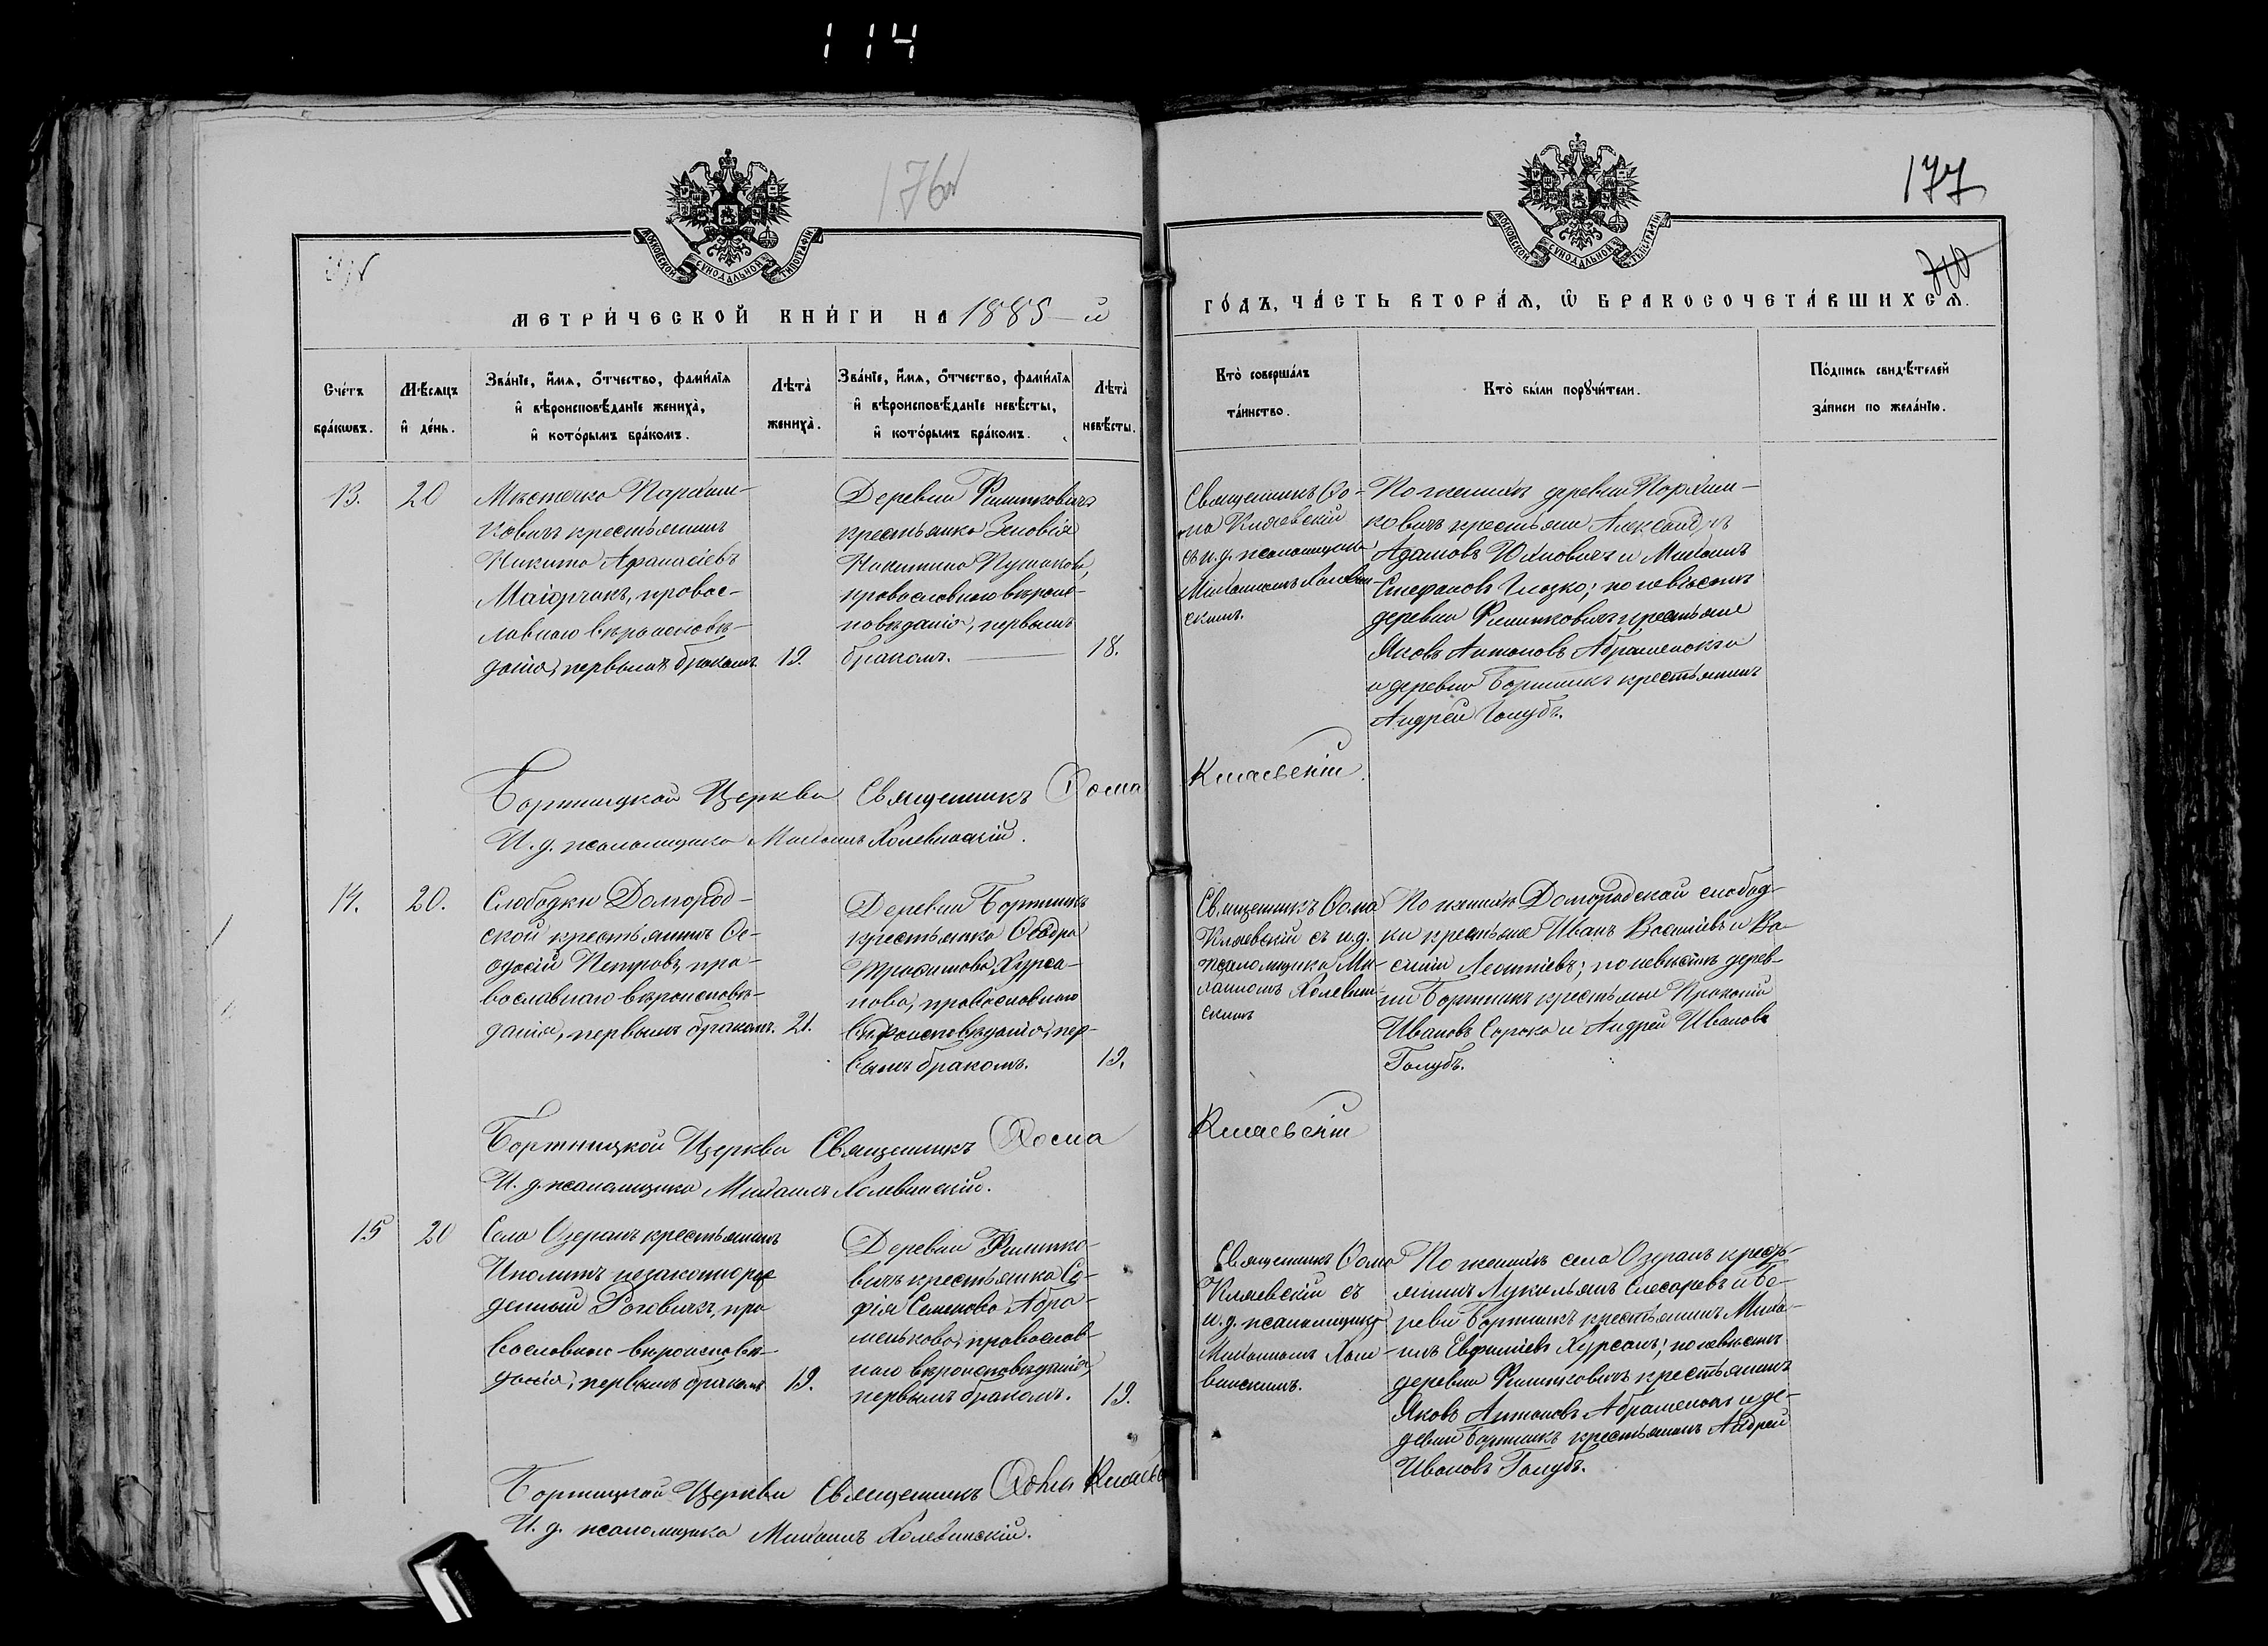 114
176об
177
710
МОСКОВСКОЙ СУНОДАЛЬНОЙ ТИПОГРАФІИ
МОСКОВСКОЙ СУНОДАЛЬНОЙ ТИПОГРАФІИ
МЕТРИ́ЧЕСКОЙ КНИ́ГИ НА 1885-й
ГО́ДЪ, ЧА́СТЬ ВТОРА́Ѧ, Ѿ БРАКОСОЧЕТА́ВШИХСѦ.
Сче́тъ
бра́кωвъ.
Мѣ́сѧцъ
и҆ де́нь.
Зва́нїе, и҆́мѧ, ѻ҆́тчество, фами́лїѧ
и҆ вѣроисповѣ́данїе жениха̀,
и҆ кото́рымъ бра́комъ.
Лѣ́та̀
жениха̀.
Зва́нїе, и҆́мѧ, ѻ҆́тчество, фами́лїѧ
и҆ вѣроисповѣ́данїе невѣ́сты,
и҆ кото́рымъ бра́комъ.
Лѣ́та̀
невѣ́сты.
Кто̀ соверша́лъ
та́инство.
Кто̀ бы́ли порꙋчи́тели.
По́дпись свидѣ́телей
за́писи по жела́нїю.
13.
20
Мѣстечка Пархим-
ковичъ крестьянинъ
Никита Афанасіевъ
Маіорчакъ, правос-
лавнаго вѣроисповѣ-
данія, первымъ бракомъ.
19.
Деревни Филипковичъ
крестьянка Зеновія
Никитина
православнаго вѣроис-
повѣданія, первымъ
бракомъ.
18.
Священникъ Ѳо-
ма Кляевскій
съ и.д. псаломщика
Михаиломъ Холевин-
скимъ.
По женихѣ деревни Порхим-
ковичъ крестьяне Александръ
Адамовъ Юхновичъ и Михаилъ
Стефановъ Глозко; по невѣстѣ
деревни Филипковичъ крестьяне
Яковъ Антоновъ
и деревни Бортникъ крестьянинъ
Андрей Голубъ.
Бортницкой Церкви Священникъ Ѳома Кляевскій
И. д. псаломщика Михаилъ Холевинскій.
14.
20.
Слободки Домород-
ской крестьянинъ Ѳе-
одосій Петровъ, пра-
вославнаго вѣроисповѣ-
данія, первымъ бракомъ.
21.
Деревни Бортникъ
крестьянка Ѳеодора
Трофимова Хурса-
нова, православнаго
вѣроисповѣданія, пер-
вымъ бракомъ.
19.
Священникъ Ѳома
Кляевскій съ и.д.
псаломщика Ми-
хаиломъ Холевин-
скимъ
По женихѣ Домородской слобод-
ки крестьяне Иванъ Василіевъ и Ва-
силій Леонтіевъ; по невѣстѣ дерев-
ни Бортникъ крестьяне Прокопій
Ивановъ Сорока и Андрей Ивановъ
Голубъ.
Бортницкой Церкви Священникъ Ѳома Кляевскій
И. д. псаломщика Михаилъ Холевинскій.
15
20
Села Озеранъ крестьянинъ
Иполитъ незаконнорож
денный Роговичъ, пра
вославнаго вѣроисповѣ-
данія, первымъ бракомъ
19.
Деревни Филипко-
вичъ крестьянка Со-
фія Семенова Абра-
менькова, православ-
наго вѣроисповѣданія,
первымъ бракомъ.
19.
Священникъ Ѳома
Кляевскій съ
и.д. псаломщика
Михаиломъ Холе-
винскимъ.
По женихѣ села Озеранъ кресть-
янинъ Лукильянъ Слесаревъ и де-
ревни Бортникъ крестьянинъ Миха-
илъ Евфиміевъ Хурсанъ; по невѣстѣ
деревни Филипковичъ крестьянинъ
Яковъ Антоновъ Абраменокъ и де-
ревни Бортникъ крестьянинъ Андрей
Ивановъ Голубъ.
Бортницкой Церкви Священникъ Ѳома Кляевс
И. д. псаломщика Михаилъ Холевинскій.